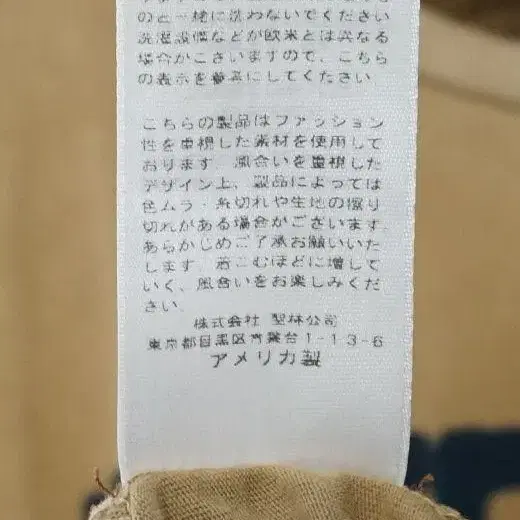 のと一緒に洗わないでください
洗濯設備などが欧米とは異なる
場合がございますので、こちら
の表示を参考にしてください
こちらの製品はファッション
性を重視した素材を使用して
おります。風合いを重視した
デザイン上、製品によっては
色ムラ・糸切れや生地の擦り
切れがある場合がございます
あらかじめご了承お願いいた
します。着こむほどに増して
いく、風合いをお楽しみくだ
さい.
株式会社 聖林公司
東京都目黒区青葉台1-13-6
アメリカ製